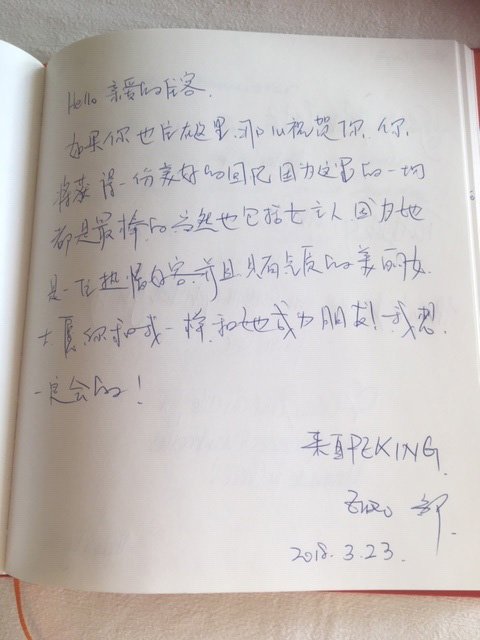 Hello 亲爱的住客.
如果你也住在这里.那么祝贺你.你.
将获得一份美好的回忆因为这里的一切
都是最棒的当然也包括女主人.因为她
是一位热情好客.并且具有气质的美丽女
士愿你和我一样.和她成为朋友!我想.
一定会的!
来自PEKING.
2018.3.23.